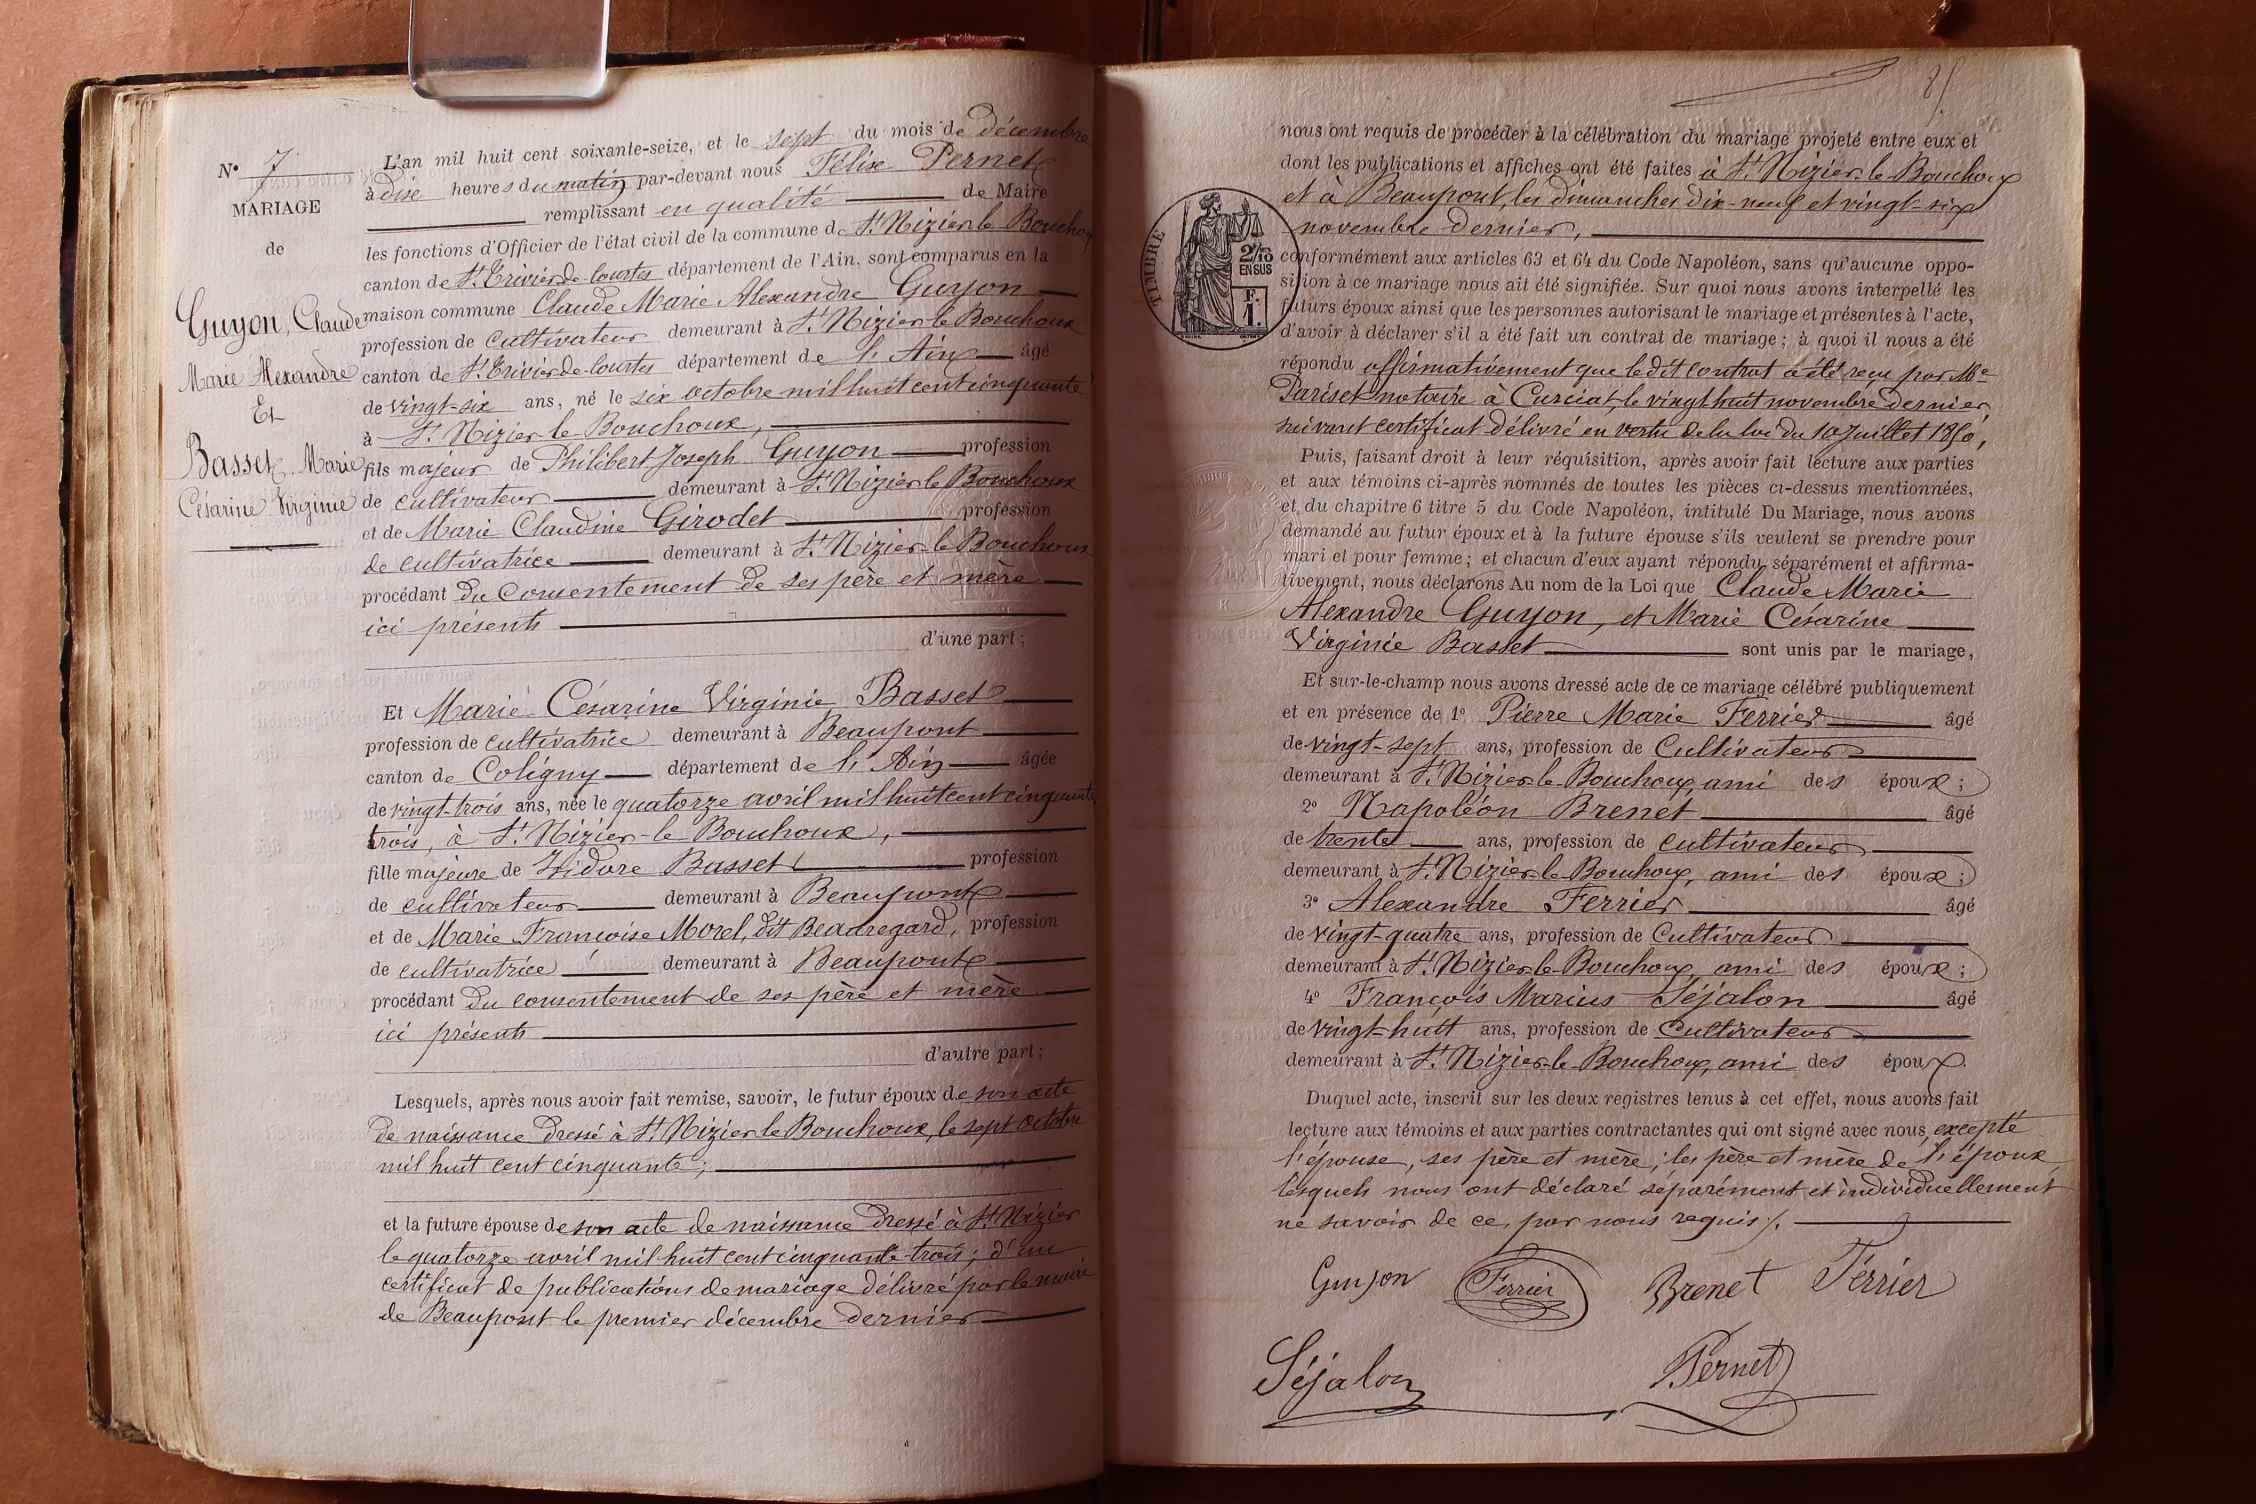 N° 7
MARIAGE
de
Guyon, Claude
Marie Alexandre
Et
Basset Marie
Césarine Virginie
L'an mil huit cent soixante-seize, et le sept du mois de décembre
à dix heures du matin par-devant nous Félix Pernet
remplissant en qualité de Maire
les fonctions d'Officier de l'état civil de la commune de St Nizier le Bouchoux
canton de St Trivier de Courtes département de l'Ain, sont comparus en la
maison commune Claude Marie Alexandre Guyon
profession de cultivateur demeurant à St Nizier le Bouchoux
canton de St Trivier de Courtes département de l'Ain âgé
de vingt-six ans, né le six octobre mil huit cent cinquante
à St Nizier-le Bouchoux,
fils majeur de Philibert Joseph Guyon profession
de cultivateur demeurant à St Nizier le Bouchoux
et de Marie Claudine Girodet profession
de cultivatrice demeurant à St Nizier le Bouchoux
procédant du consentement de ses père et mère
ici présents
d'une part;
Et Marie Césarine Virginie Basset
profession de cultivatrice demeurant à Beaupont
canton de Coligny département de l'Ain âgée
de vingt-trois ans, née le quatorze avril mil huit cent cinquante
trois, à St Nizier-le Bouchoux,
fille majeure de Isidore Basset profession
de cultivateur demeurant à Beaupont
et de Marie Françoise Morel, dit Beauregard, profession
de cultivatrice demeurant à Beaupont
procédant du consentement de ses père et mère
ici présents
d'autre part;
Lesquels, après nous avoir fait remise, savoir, le futur époux de son acte
de naissance dressé à St Nizier le Bouchoux, le sept octobre
mil huit cent cinquante;
et la future épouse de son acte de naissance dressé à St Nizier
le quatorze avril mil huit cent cinquante-trois; d'un
certificat de publications de mariage délivré par le maire
de Beaupont le premier décembre dernier
85
nous ont requis de procéder à la célébration du mariage projeté entre eux et
dont les publications et affiches ont été faites à St Nizier-le Bouchoux
et à Beaupont, les dimanches dix-neuf et vingt-six
novembre dernier,
TIMBRE
2/10
EN SUS
F.
1.
conformément aux articles 63 et 64 du Code Napoléon, sans qu'aucune oppo-
sition à ce mariage nous ait été signifiée. Sur quoi nous avons interpellé les
futurs époux ainsi que les personnes autorisant le mariage et présentes à l'acte,
d'avoir à déclarer s'il a été fait un contrat de mariage; à quoi il nous a été
répondu affirmativement que le dit contrat a été reçu par Me
Pariset notaire à Curciat, le vingt huit novembre dernier,
suivant certificat délivré en vertu de la loi du 10 Juillet 1850,
Puis, faisant droit à leur réquisition, après avoir fait lecture aux parties
et aux témoins ci-après nommés de toutes les pièces ci-dessus mentionnées,
et du chapitre 6 titre 5 du Code Napoléon, intitulé Du Mariage, nous avons
demandé au futur époux et à la future épouse s'ils veulent se prendre pour
mari et pour femme; et chacun d'eux ayant répondu séparément et affirma-
tivement, nous déclarons Au nom de la Loi que Claude Marie
Alexandre Guyon, et Marie Césarine
Virginie Basset sont unis par le mariage,
Et sur-le-champ nous avons dressé acte de ce mariage célébré publiquement
et en présence de 1° Pierre Marie Ferrier âgé
de vingt-sept ans, profession de Cultivateur
demeurant à St Nizier-le-Bouchoux, ami des époux;
2° Napoléon Brenet âgé
de trente ans, profession de cultivateur
demeurant à St Nizier-le-Bouchoux, ami des époux;
3° Alexandre Ferrier âgé
de vingt-quatre ans, profession de Cultivateur
demeurant à St Nizier-le-Bouchoux, ami des époux;
4° François Marius Séjalon âgé
de vingt-huit ans, profession de Cultivateur
demeurant à St Nizier-le-Bouchoux, ami des époux.
Duquel acte, inscrit sur les deux registres tenus à cet effet, nous avons fait
lecture aux témoins et aux parties contractantes qui ont signé avec nous, excepté
l'épouse, ses père et mère; les père et mère de l'époux
lesquels nous ont déclaré séparément et individuellement
ne savoir de ce, par nous requis/.
Guyon Ferrier Brenet Férrier
Séjalon Pernet